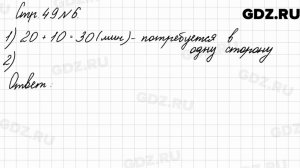 GDZ.RU
Стр. 49 № 6
1) 20 + 10 = 30 (мин) - потребуется в
одну сторону
2)
Ответ:
GDZ.RU
GDZ.RU